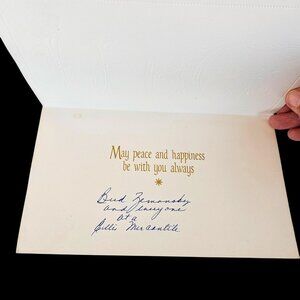 May peace and happiness
be with you always
Bud Zemansky
and everyone
at a
Gillis Mercantile